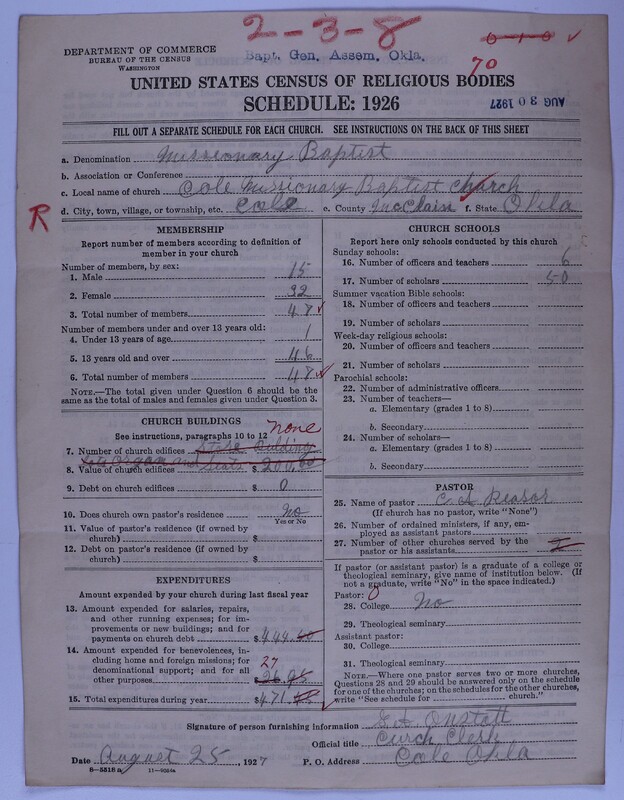 2-3-8
DEPARTMENT OF COMMERCE
BUREAU OF THE CENSUS
WASHINGTON
Bapt. Gen. Assem. Okla.
70
UNITED STATES CENSUS OF RELIGIOUS BODIES
SCHEDULE: 1926
AUG 30 1927
FILL OUT A SEPARATE SCHEDULE FOR EACH CHURCH. SEE INSTRUCTIONS ON THE BACK OF THIS SHEET
a. Denomination Missionary Baptist
b. Association or Conference
c. Local name of church Cole Missionary Baptist church
R
d. City, town, village, or township, etc. Cole e. County McClain f. State Okla
MEMBERSHIP
Report number of members according to definition of
member in your church
Number of members, by sex:
1. Male 15
2. Female 32
3. Total number of members 48
Number of members under and over 13 years old:
4. Under 13 years of age 1
5. 13 years old and over 46
6. Total number of members 48
NOTE.—The total given under Question 6 should be
the same as the total of males and females given under Question 3.
CHURCH BUILDINGS
See instructions, paragraphs 10 to 12 none
7. Number of church edifices Building
8. Value of church edifices $ 200.00
9. Debt on church edifices $ 0
10. Does church own pastor's residence No
Yes or No
11. Value of pastor's residence (if owned by
church) $
12. Debt on pastor's residence (if owned by
church) $
EXPENDITURES
Amount expended by your church during last fiscal year
13. Amount expended for salaries, repairs,
and other running expenses; for im-
provements or new buildings; and for
payments on church debt $ 444.
14. Amount expended for benevolences, in-
cluding home and foreign missions; for
denominational support; and for all
other purposes 27 26.95
15. Total expenditures during year $ 471.
CHURCH SCHOOLS
Report here only schools conducted by this church
Sunday schools:
16. Number of officers and teachers 6
17. Number of scholars 50
Summer vacation Bible schools:
18. Number of officers and teachers
19. Number of scholars
Week-day religious schools:
20. Number of officers and teachers
21. Number of scholars
Parochial schools:
22. Number of administrative officers
23. Number of teachers—
a. Elementary (grades 1 to 8)
b. Secondary
24. Number of scholars—
a. Elementary (grades 1 to 8)
b. Secondary
PASTOR
25. Name of pastor C A Reasor
(If church has no pastor, write "None")
26. Number of ordained ministers, if any, em-
ployed as assistant pastors
27. Number of other churches served by the
pastor or his assistants
If pastor (or assistant pastor) is a graduate of a college or
theological seminary, give name of institution below. (If
not a graduate, write "No" in the space indicated.)
Pastor:
28. College No
29. Theological seminary
Assistant pastor:
30. College
31. Theological seminary
NOTE.—Where one pastor serves two or more churches,
Questions 28 and 29 should be answered only on the schedule
for one of the churches; on the schedules for the other churches,
write "See schedule for church."
Signature of person furnishing information Onstott
Official title Curch Clerk
Date August 25, 1927 P. O. Address Cole Okla
8-5518 a 11-9084a